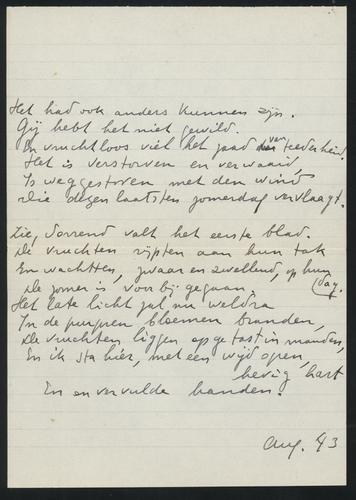 Het had ook anders kunnen zijn.
Gij hebt het niet gewild.
En vruchtloos viel het zaad van teederheid.
Het is verstorven en verwaaid,
Is weggestoven met den wind
Die dezen laatsten zomerdag vervlaagt.
Zie, dorrend valt het eerste blad.
De vruchten rijpten aan hun tak
En wachtten, zwaar en zwellend, op hun dag.
De zomer is voorbij gegaan.
Het late licht zal nu weldra
In de purpren bloemen branden,
De vruchten liggen opgetast in manden,
En ik sta hier, met een wijd open,
hevig hart
En onvervulde handen.
Aug. 43